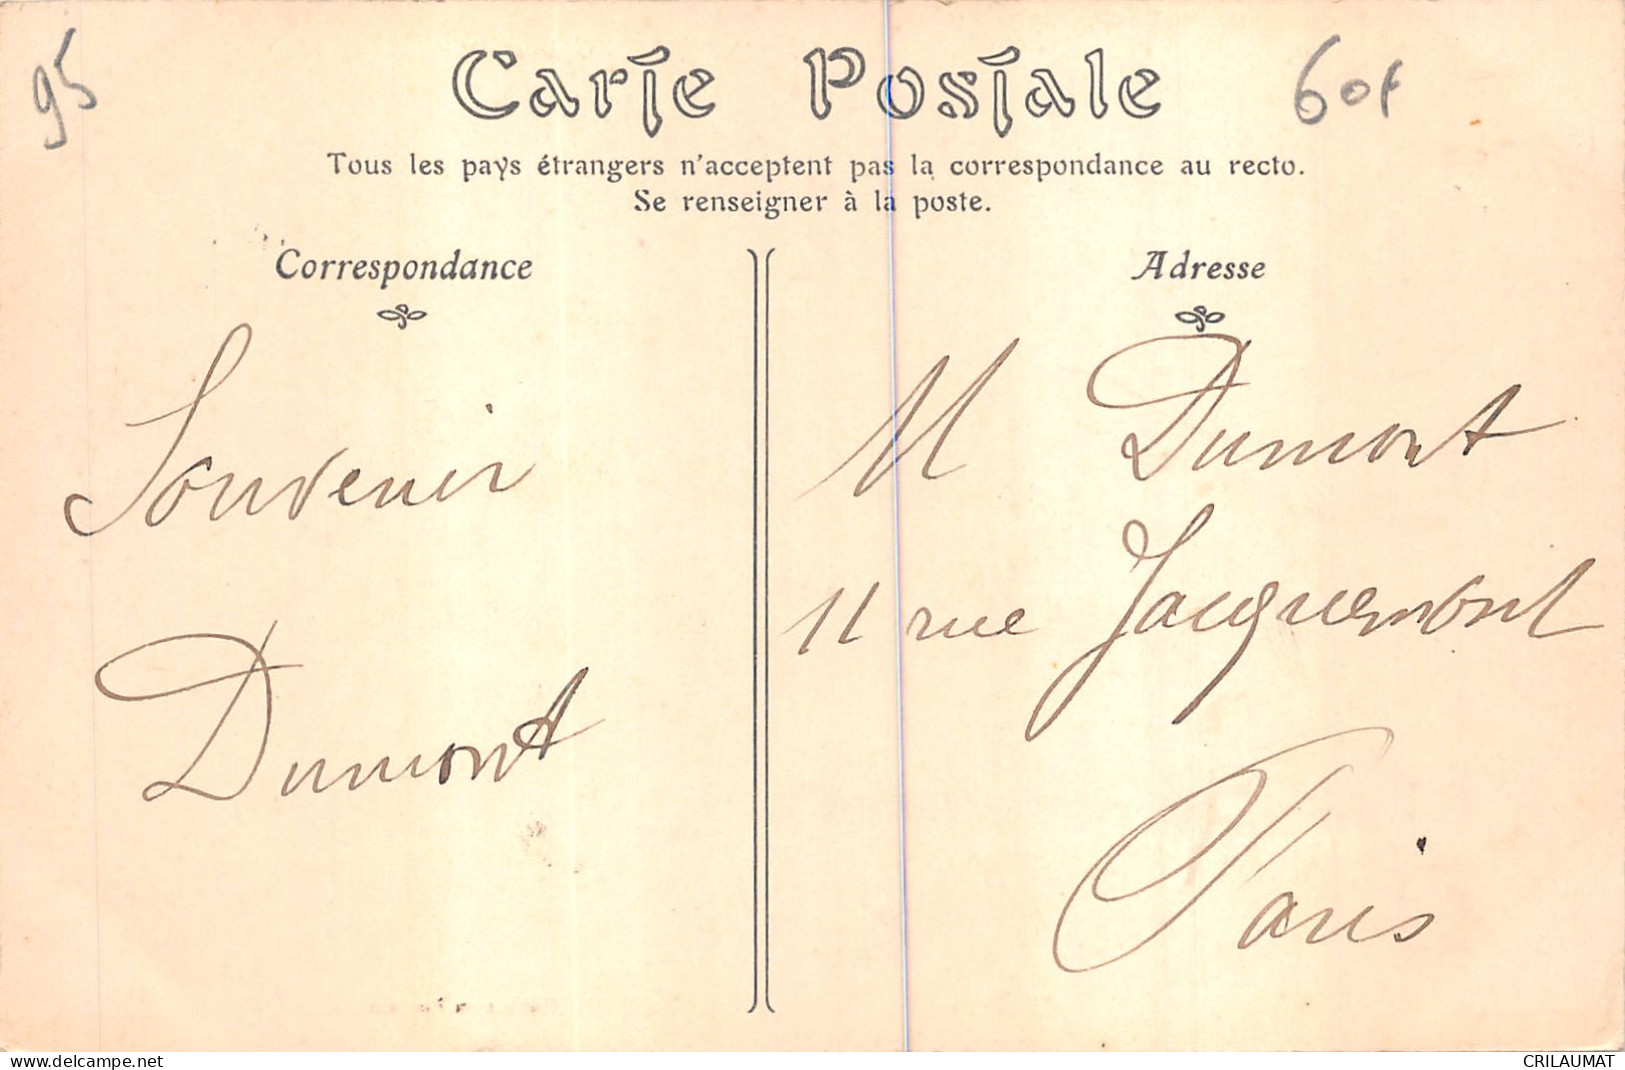 95
Carte Postale
60f
Tous les pays étrangers n'acceptent pas la correspondance au recto.
Se renseigner à la poste.
Correspondance
Souvenir
Dumont
Adresse
M Dumont
11 rue Jacquemont
Paris
www.delcampe.net
CRILAUMAT